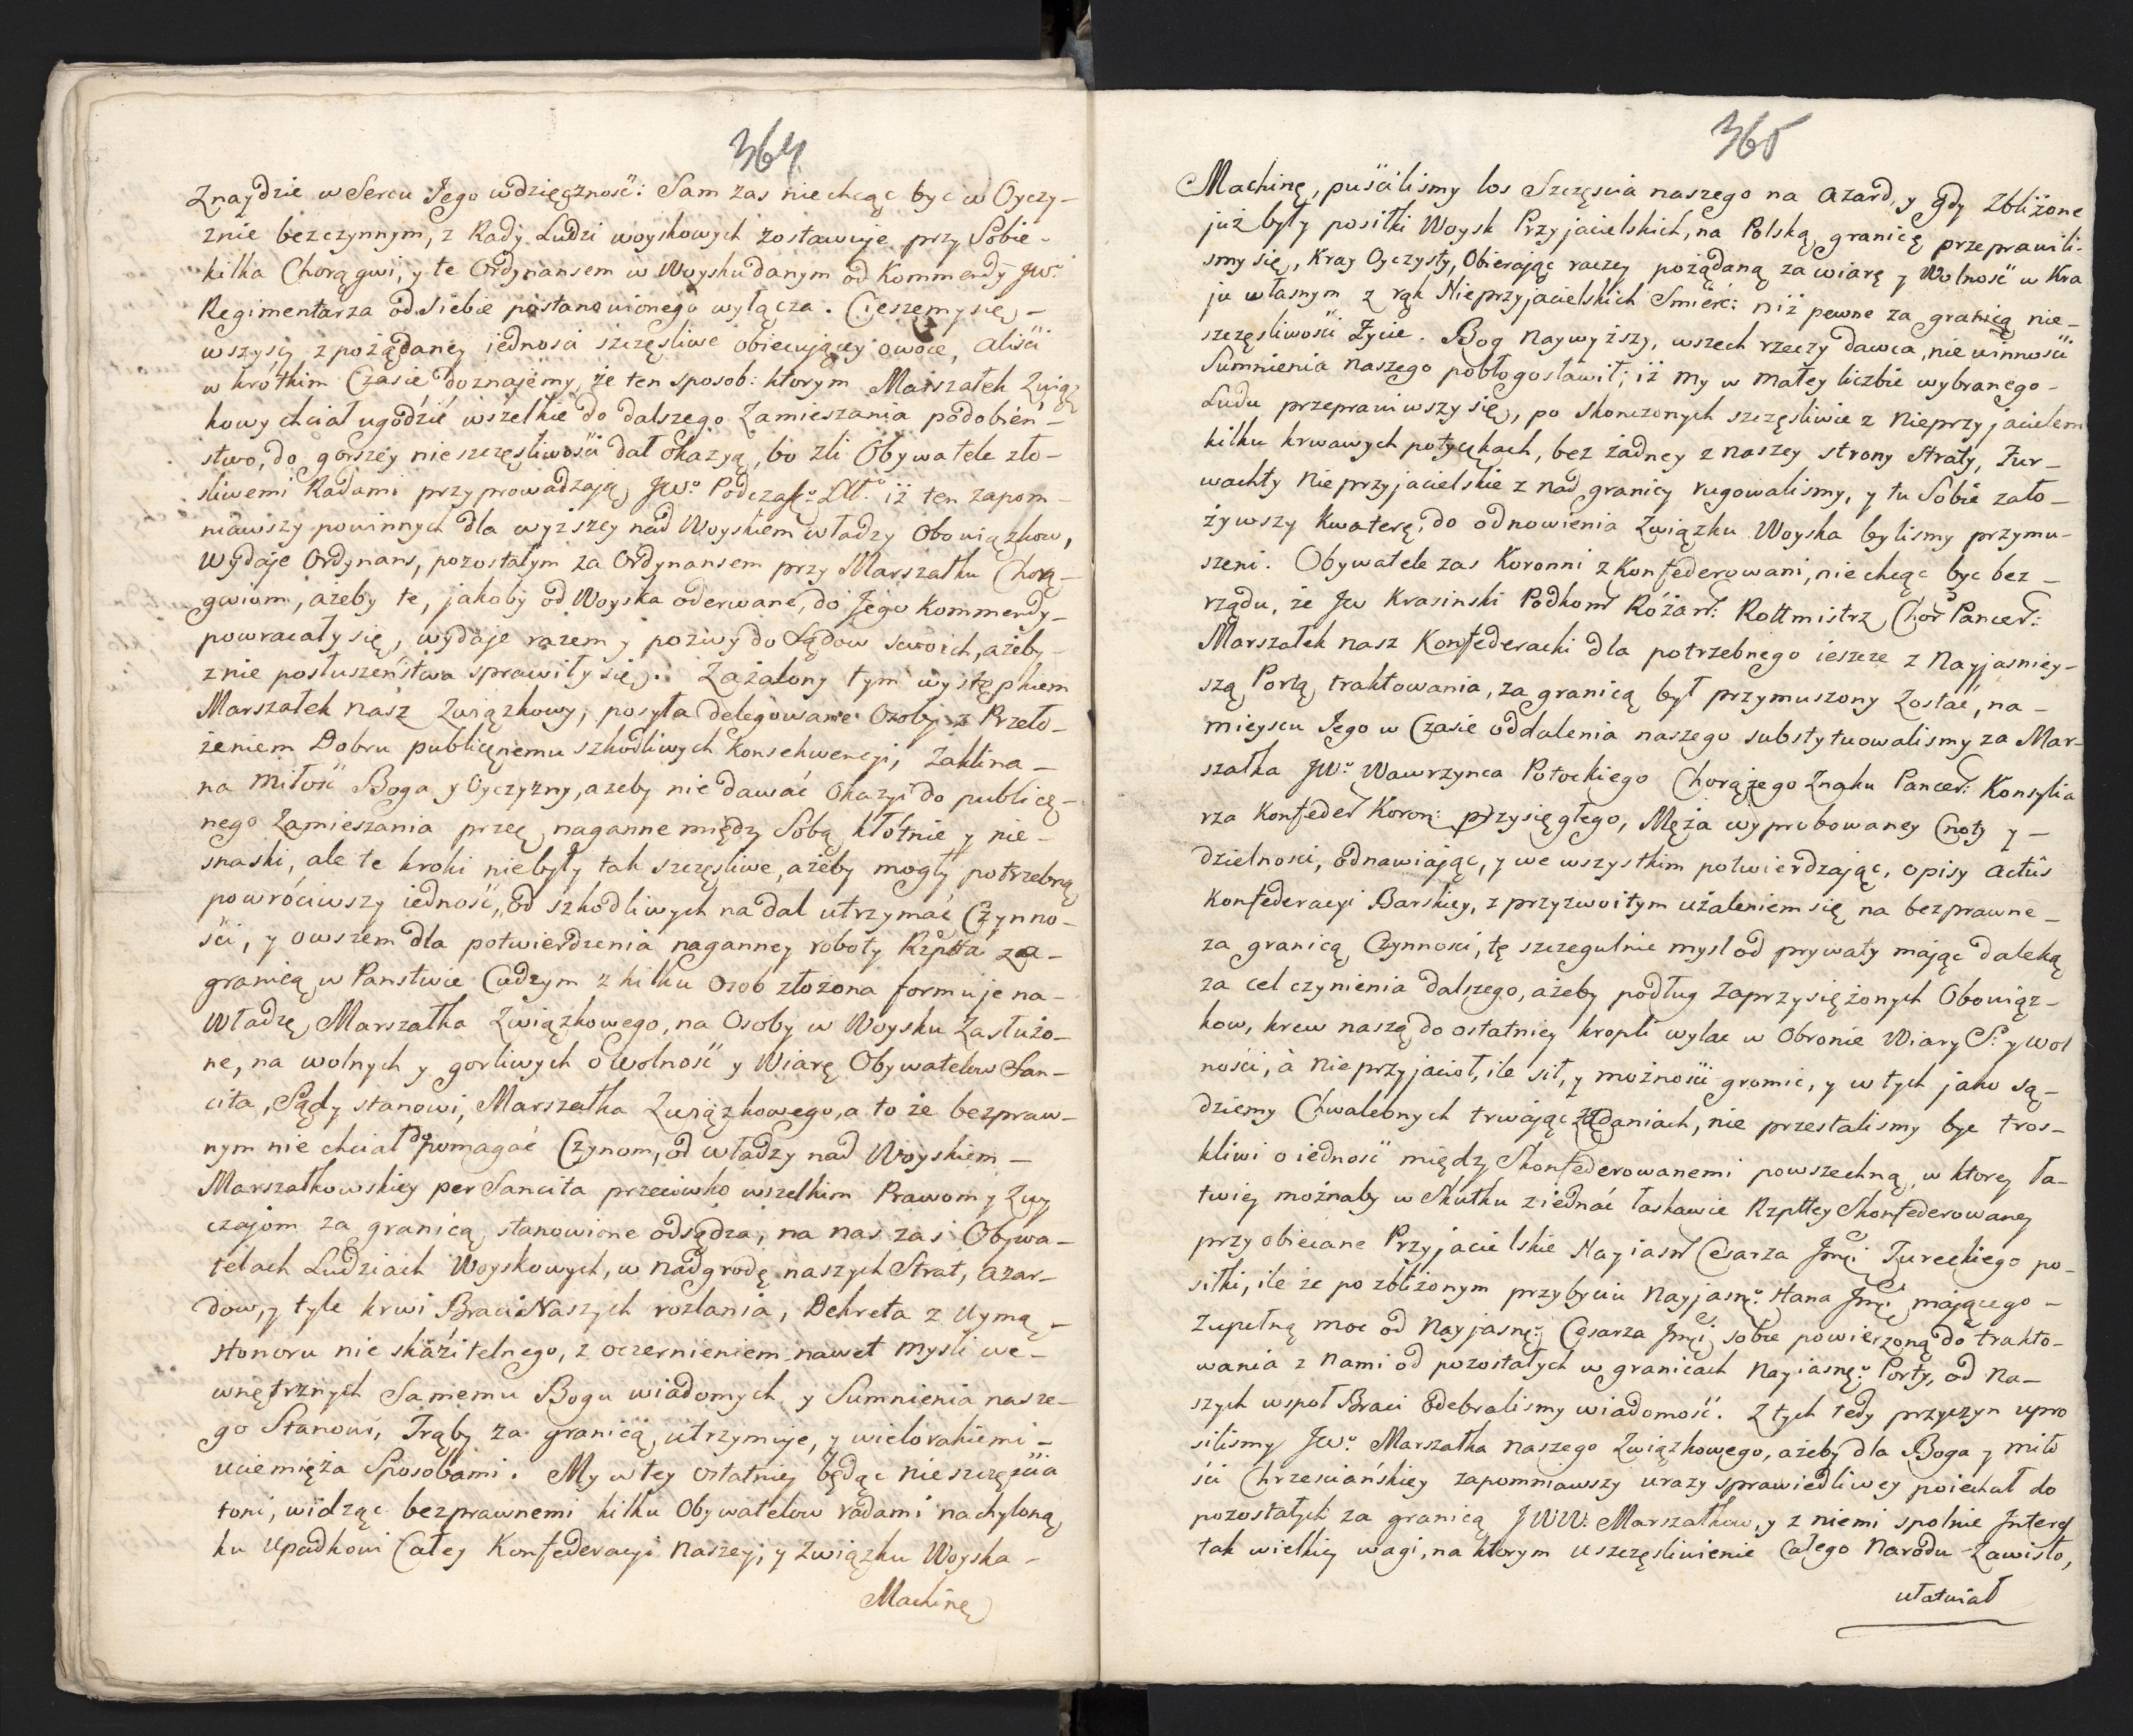 364
Znaydzie w Sercu Jego wdzięczność: Sam zas niechcąc być w Oyczy-
znie bezczynnym, z Rady Ludzi woyskowych zostawuje przy Sobie-
kilka Chorągwi, y te Ordynansem w Woysku danym od Kommendy JW:
Regimentarza od siebie postanowionego wyłącza. Cieszemy się-
wszyscy z pożądaney iedności szczęśliwe obiecującey owoce, aliści
w krótkim Czasie doznajemy, że ten sposob: ktorym Marszałek Związ
kowy chciał ugodzić wszelkie do dalszego Zamieszania podobień-
stwo, do gorszey nieszczęśliwości dał okazyą, bo zli Obywatele zło-
sliwemi Radami przyprowadzają JWo Podczasgo Litt: iż ten zapom-
niawszy powinnych dla wyższey nad Woyskiem władzy Obowiązkow,
Wydaje Ordynans, pozostałym za Ordynansem przy Marszałku Chorą-
gwiom, ażeby te, jakoby od Woyska oderwane, do Jego Kommendy-
powracały się, wydaje razem y pozwy do Sądow swoich, ażeby-
z nie posłuszeństwa sprawiły się. Zażalony tym występkiem
Marszałek nasz Związkowy, posyła delegowane Osoby z Przeło-
żeniem Dobru publicznemu szkodliwych Konsekwencyi, Zaklina-
na miłość Boga y Oyczyzny, ażeby nie dawać Okazyi do publicz-
nego Zamieszania przez naganne między Sobą kłótnie y nie-
snaski, ale te kroki niebyły tak szczęsliwe, ażeby mogły potrzebną
powróciwszy iedność, od szkodliwych nadal utrzymać Czynno-
ści, y owszem dla potwierdzenia naganney roboty Rzpltta za-
granicą w Panstwie Cudzym z kilku Osob złożona formuje na-
Władzę Marszałka Związkowego, na Osoby w Woysku Zasłużo-
ne, na wolnych y gorliwych o Wolność y Wiarę Obywatelow San-
cita, Sądy stanowi, Marszałka Związkowego, a to że bezpraw-
nym nie chciał dopomagać Czynom, od władzy nad Woyskiem-
Marszałkowskiey per Sancita przeciwko wszelkim Prawom y Zwy
czajom za granicą stanowione odsądza, na nas zas Obywa-
telach Ludziach Woyskowych, w nadgrodę naszych Strat, azar-
dow, y tyle krwi Braci Naszych rozlania, Dekreta z Uymą-
Honoru nie skazitelnego, z oczernieniem nawet mysli we-
wnętrznych Samemu Bogu wiadomych y Sumnienia nasze-
go Stanowi, Trąby za granicą utrzymuje, y wielorakiemi-
uciemięża Sposobami. My w tey ostatniey będąc nieszczęścia
toni, widząc bezprawnemi kilku Obywatelow radami nachyloną
ku Upadkowi Całey Konfederacyi naszey, y Związku Woyska-
Machinę
365
Machinę, puścilismy los Szczęscia naszego na azard, y gdy zbliżone
już były posiłki Woysk Przyjacielskich, na Polską granicę przeprawili-
smy się, Kray Oyczysty, Obierając raczey pożądaną za wiarę y Wolność w Kra
ju własnym z rąk Nieprzyjacielskich Smierć: niż pewne za granicą nie-
szczęsliwości Życie. Bog Naywyższy, wszech rzeczy dawca, nie winności
Sumnienia naszego pobłogosławił, iż my w małey liczbie wybranego-
Ludu przeprawiwszy się, po skonczonych szczęsliwie z Nieprzyjacielem
kilku krwawych potyczkach, bez żadney z naszey strony straty, Fur-
wachty Nieprzyjacielskie z nad granicy rugowalismy, y tu Sobie zało-
żywszy Kwaterę, do odnowienia Związku Woyska bylismy przymu-
szeni. Obywatele zas Koronni zKonfederowani, nie chcąc być bez-
rządu, że Jw Krasinski Podkom Różań: Rottmistrz Chor Pancer:
Marszałek nasz Konfederacki dla potrzebnego ieszcze z Nayjasniey-
szą Portą traktowania, za granicą był przymuszony zostać, na-
mieyscu Jego w Czasie oddalenia naszego substytuowalismy za Mar-
szałka JWo Wawrzynca Potockiego Chorążego Znaku Pancer: Konsylia
rza Konfeder Koron: przysięgłego, Męża wyprobowaney Cnoty y-
dzielnosci, odnawiając, y we wszystkim potwierdzając, opisy actûs
Konfederacyi Barskiey, z przyzwoitym użaleniem się na bezprawne-
za granicą Czynności, tę szczegulnie mysl od prywaty mając daleką
za cel czynienia dalszego, ażeby podług zaprzysiężonych Obowiąz-
kow, krew naszą do ostatniey kropli wylać w Obronie Wiary S: y Wol
ności, à Nieprzyjacioł, ile sił, y możności gromić, y w tych jako są-
dziemy Chwalebnych trwając żądaniach, nie przestalismy być tros-
kliwi o iedność między Skonfederowanemi powszechną, w ktorey ła-
twiey możnaby w Skutku ziednać łaskawie Rzpltey Skonfederowaney
przyobiecane Przyjacielskie Nayiasn Cesarza Jmci Tureckiego po-
siłki, ile że po zbliżonym przybyciu Nayjasn: Hana Jmci mającego-
Zupełną moc od Nayjasn: Cesarza Jmci sobie powierzoną do trakto-
wania z Nami od pozostałych w granicach Nayiasn: Porty, od Na-
szych wspoł Braci odebralismy wiadomość. Z tych tedy przyczyn upro
silismy JWo Marszałka naszego Związkowego, ażeby dla Boga y miło
ści Chrześciańskiey zapomniawszy urazy sprawiedliwey poiechał do
pozostałych za granicą JWW: Marszałkow, y z niemi spolnie Interes
tak wielkiey wagi, na ktorym uszczęsliwienie Całego Narodu Zawisło,
ułatwiał